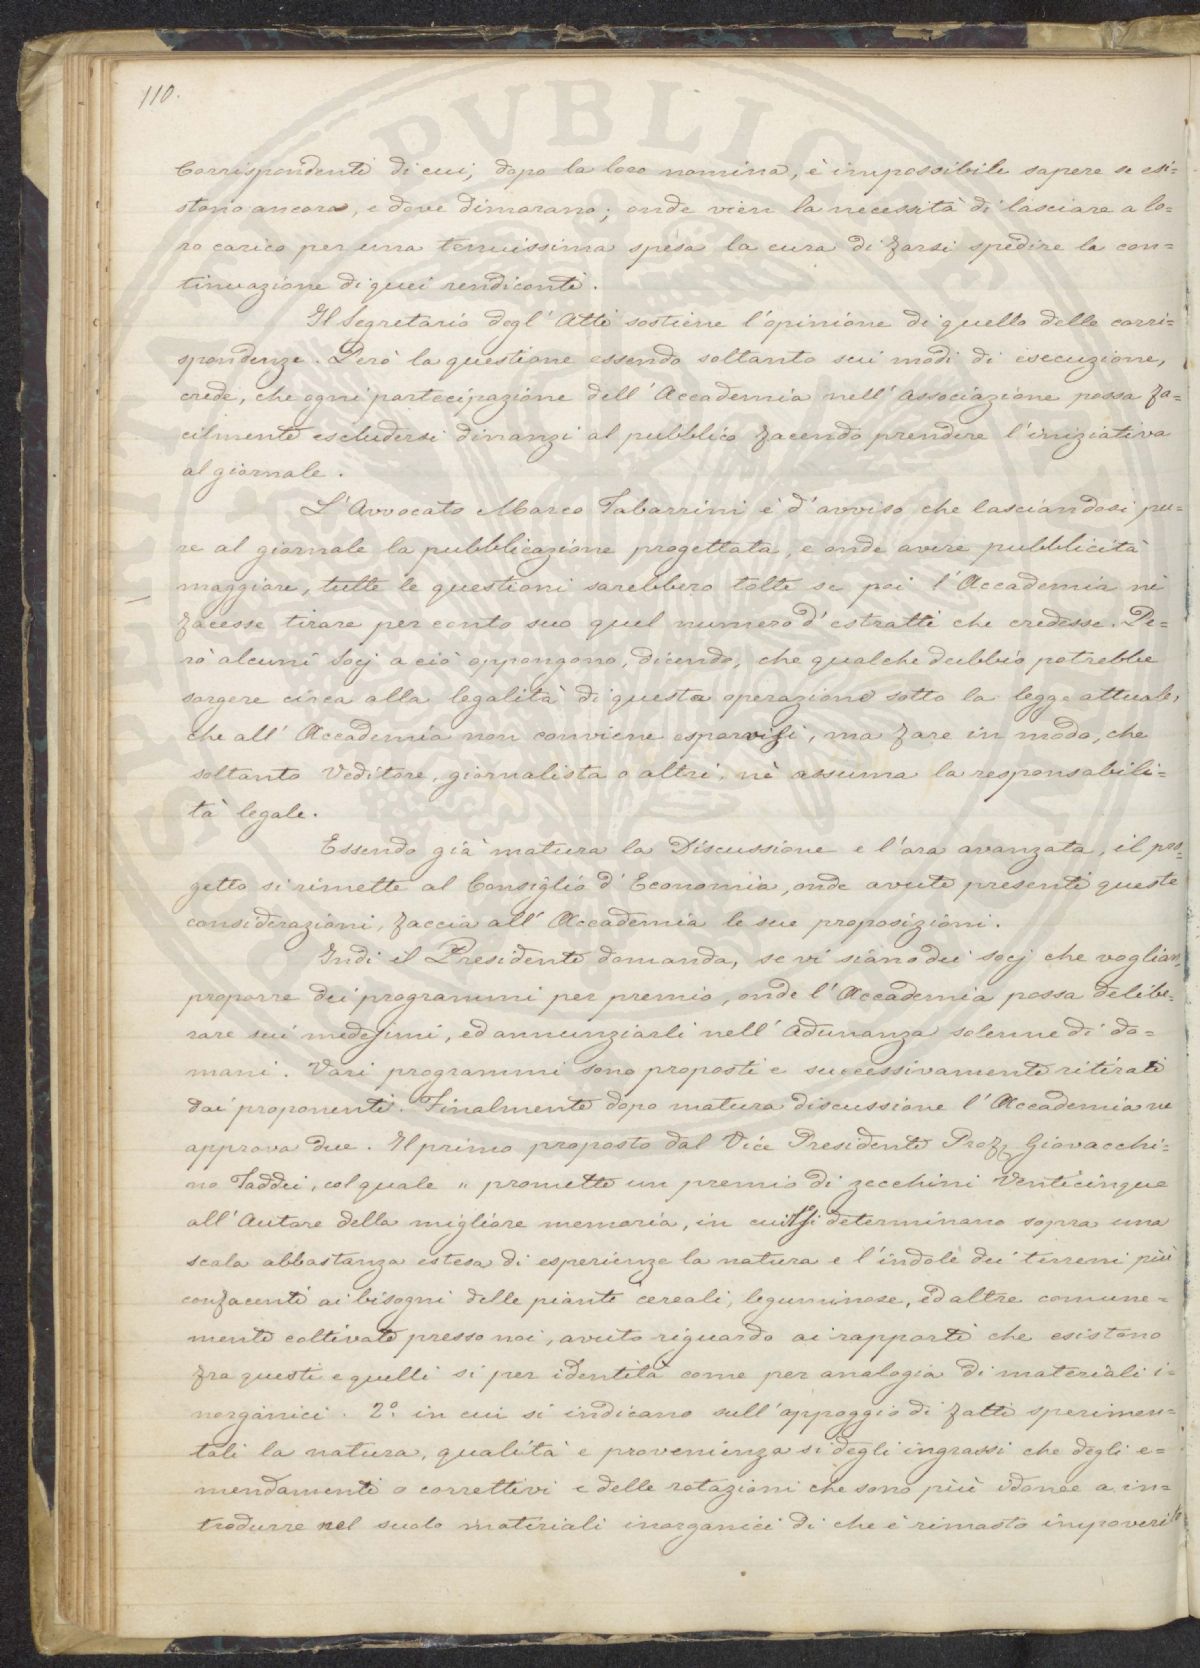 110.
Corrispondenti di cui, dopo la loro nomina, è impossibile sapere se esi=
stono ancora, e dove dimorano; onde vien la necessità di lasciare a lo=
ro carico per una tenuissima spesa la cura di farsi spedire la con=
tinuazione di quei rendiconti.
Il Segretario degl' Atti sostiene l'opinione di quello delle corri=
spondenze. Però la questione essendo soltanto sui modi di esecuzione,
crede, che ogni partecipazione dell' Accademia nell' associazione possa fa=
cilmente escludersi dinanzi al pubblico facendo prendere l'iniziativa
al giornale.
L'Avvocato Marco Tabarrini è d'avviso che lasciandosi pu=
re al giornale la pubblicazione progettata, e onde avere pubblicità
maggiore, tutte le questioni sarebbero tolte se poi l'Accademia nè
facesse tirare per conto suo quel numero d'estratti che credesse. Pe=
rò alcuni Socj a ciò oppongono, dicendo, che qualche dubbio potrebbe
sorgere circa alla legalità di questa operazione sotto la legge attuale,
che all' Accademia non conviene esporvisi, ma fare in modo, che
soltanto l'editore, giornalista o altri, nè assuma la responsabili=
tà legale.
Essendo già matura la Discussione e l'ora avanzata, il pro=
getto si rimette al Consiglio d'Economia, onde avute presenti queste
considerazioni, faccia all' Accademia le sue proposizioni.
Indi il Presidente domanda, se vi siano dei socj che voglian
proporre dei programmi per premio, onde l'Accademia possa delibe=
rare sui medesimi, ed annunziarli nell' Adunanza solenne di do=
mani. Vari programmi sono proposti e successivamente ritirati
dai proponenti. Finalmente dopo matura discussione l'Accademia ne
approva due. Il primo proposto dal Vice Presidente Prof. Giovacchi=
no Taddei, col quale " promette un premio di zecchini Venticinque
all' Autore della migliore memoria, in cui 1º si determinano sopra una
scala abbastanza estesa di esperienze la natura e l'indole dei terreni più
confacenti ai bisogni delle piante cereali, leguminose, ed altre comune=
mente coltivate presso noi, avuto riguardo ai rapporti che esistono
fra questi e quelli si per identità come per analogia di materiali i=
norganici. 2º. in cui si indicano sull'appoggio di fatti sperimen=
tali la natura, qualità e provenienza si degli ingrassi che degli e=
mendamenti o correttivi e delle rotazioni che sono più idonee a in=
trodurre nel suolo materiali inorganici di che è rimasto impoverito